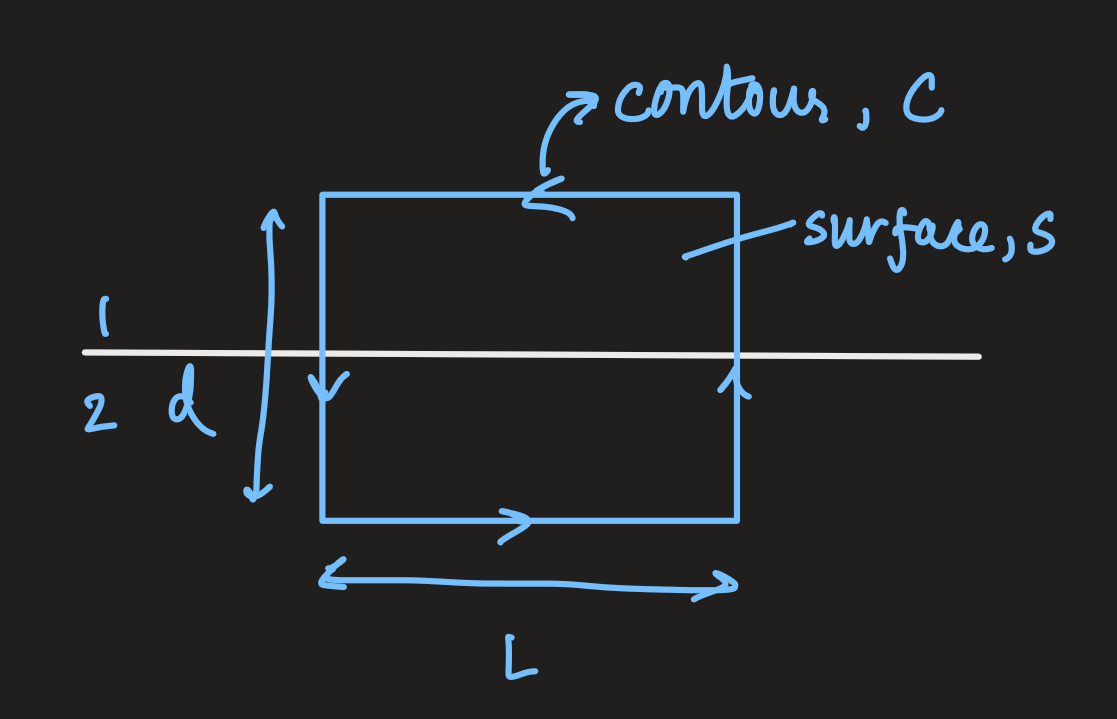 contour, C
surface, s
1
2 d
L